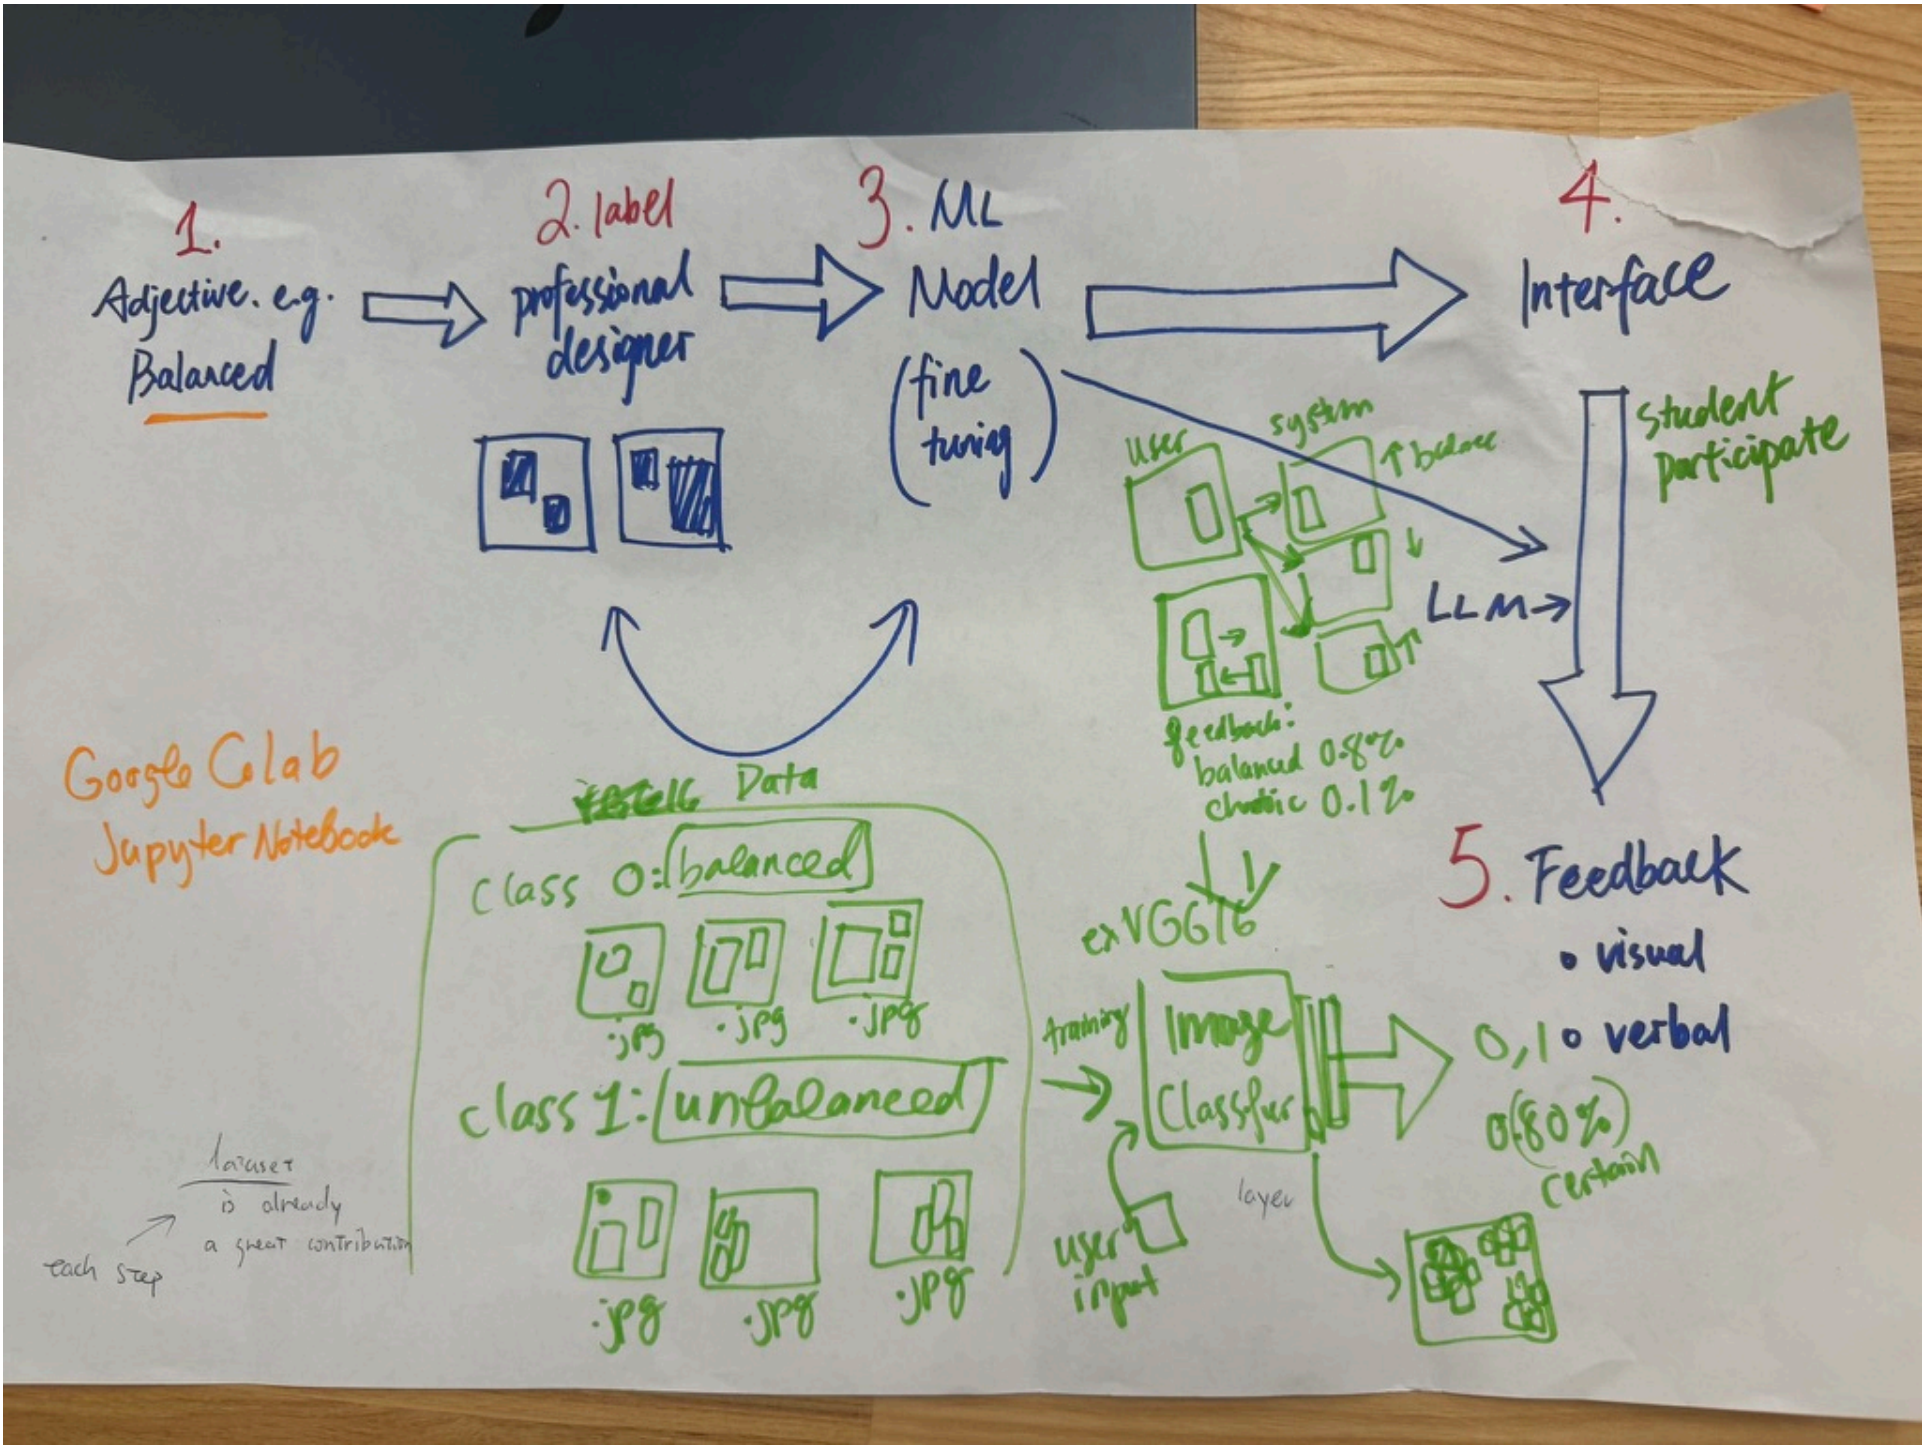 1.
Adjective. e.g.
Balanced
2. label
professional
designer
3. ML
Model
(fine
tuning)
4.
Interface
student
participate
user
system
↑ balance
↓
↑
LLM→
feedback:
balanced 0.8%
chaotic 0.1%
5. Feedback
• visual
• verbal
Google Colab
Jupyter Notebook
Data
class 0: balanced
.jpg
.jpg
.jpg
class 1: unbalanced
.jpg
.jpg
.jpg
ex VGG16
training
Image
Classifier
user
input
layer
0,1
0(80%)
certain
is already
a great contribution
each step